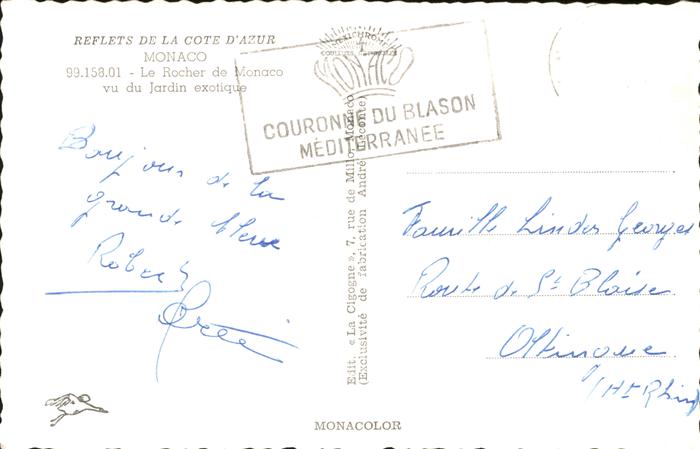 REFLETS DE LA COTE D'AZUR
MONACO
99.158.01 - Le Rocher de Monaco
vu du Jardin exotique
MONACO
COURONNE DU BLASON
MÉDITERRANEE
Bonjour de la
grande bleue
Robert
Edit. « La Cigogne », 7, rue de Millo, Monaco
(Exclusivité de fabrication André Leconte)
Famille Linder Georges
Route de St Blaise
Oltingue
(Ht Rhin)
MONACOLOR